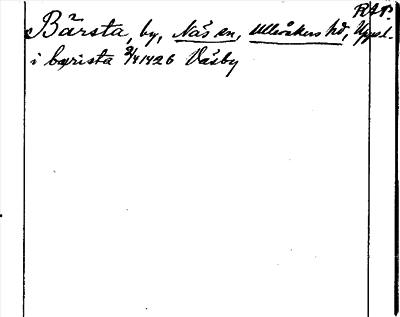 RAp.
Bärsta, by, Näs sn, Ulleråkers hd, Uppl.
i bærista 2/4 1426 Väsby